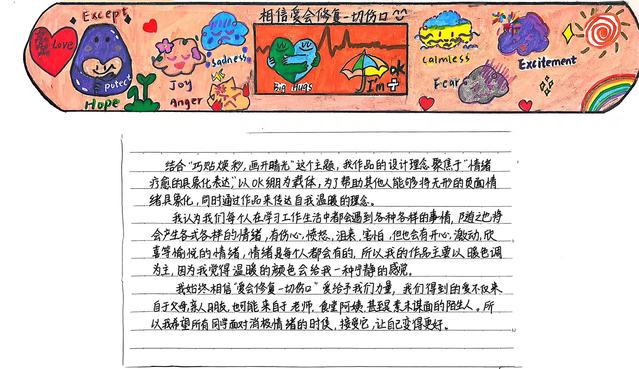 Except
Love
protect
Hope
Joy
Sadness
Anger
相信爱会修复一切伤口
Big Hugs
ok
I'm
calmless
Fear
Excitement
结合“巧贴焕彩,画开晴光”这个主题,我作品的设计理念聚焦于“情绪
疗愈的具象化表达”,以OK绷为载体,为了帮助其他人能够将无形的负面情
绪具象化,同时通过作品来传达自我温暖的理念。
我认为我们每个人在学习工作生活中都会遇到各种各样的事情,随之也将
会产生各式各样的情绪,有伤心,愤怒,沮丧,害怕,但也会有开心,激动,欣
喜等愉悦的情绪,情绪是每个人都会有的,所以我的作品主要以暖色调
为主,因为我觉得温暖的颜色会给我一种宁静的感觉。
我始终相信“爱会修复一切伤口”爱给予我们力量,我们得到的爱不仅来
自于父母,亲人,朋友,也可能来自于老师,食堂阿姨,甚至是素未谋面的陌生人。所
以我希望所有同学面对消极情绪的时候,接受它,让自己变得更好。